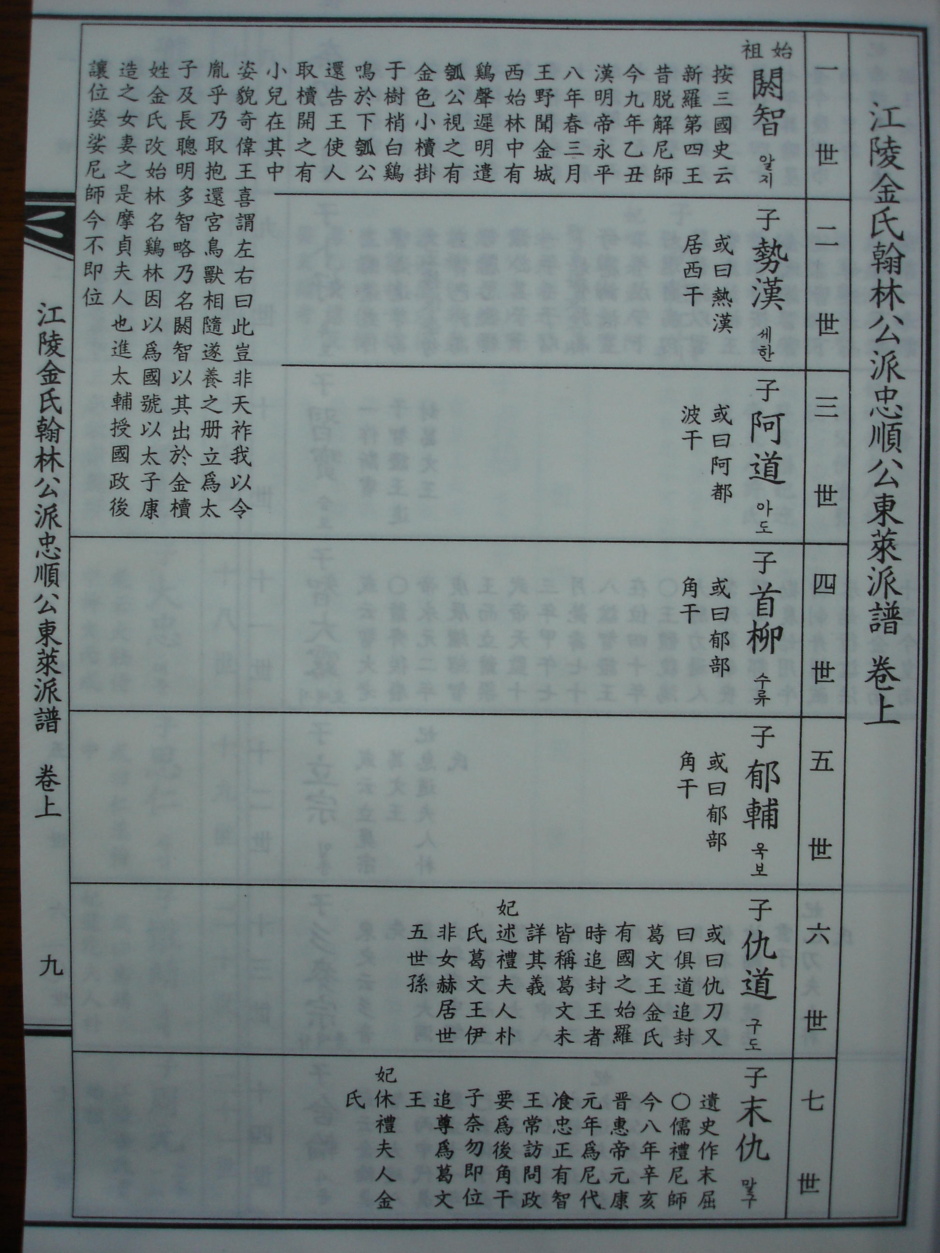 江陵金氏翰林公派忠順公東萊派譜 卷上
一世
始祖 閼智 알지
按三國史云
新羅第四王
昔脱解尼師
今九年乙丑
漢明帝永平
八年春三月
王野聞金城
西始林中有
鷄聲遲明遣
瓠公視之有
金色小櫝掛
于樹梢白鷄
鳴於下瓠公
還告王使人
取櫝開之有
小兒在其中
姿貌奇偉王喜謂左右曰此豈非天祚我以令
胤乎乃取抱還宮鳥獸相隨遂養之册立爲太
子及長聰明多智略乃名閼智以其出於金櫝
姓金氏改始林名鷄林因以爲國號以太子康
造之女妻之是摩貞夫人也進太輔授國政後
讓位婆娑尼師今不即位
二世
子 勢漢 세한
或曰熱漢
居西干
三世
子 阿道 아도
或曰阿都
波干
四世
子 首柳 수류
或曰郁部
角干
五世
子 郁輔 욱보
或曰郁部
角干
六世
子 仇道 구도
或曰仇刀又
曰俱道追封
葛文王金氏
有國之始羅
時追封王者
皆稱葛文未
詳其義
妃 述禮夫人朴
氏葛文王伊
非女赫居世
五世孫
七世
子 末仇 말구
遺史作末屈
〇儒禮尼師
今八年辛亥
晋惠帝元康
元年爲尼代
飡忠正有智
王常訪問政
要爲後角干
子奈勿即位
追尊爲葛文
王
妃 休禮夫人金
氏
江陵金氏翰林公派忠順公東萊派譜 卷上
九